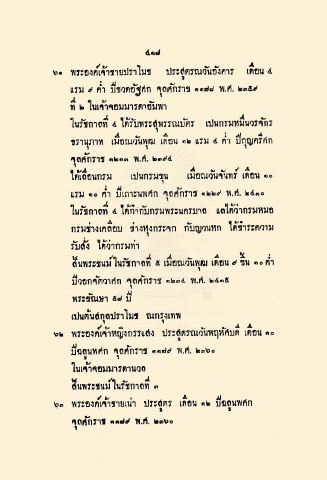 ๔๑๗
๖๑ พระองค์เจ้าชายปราโมช ประสูตรณวันอังคาร เดือน ๔
แรม ๙ ค่ำ ปีชวดอัฐศก จุลศักราช ๑๑๗๘ พ.ศ. ๒๓๕๙
ที่ ๒ ในเจ้าจอมมารดาอัมพา
ในรัชกาลที่ ๔ ได้รับพระสุพรรณบัตร เปนกรมหมื่นวรจักร
ธรานุภาพ เมื่อณวันพุฒ เดือน ๑๒ แรม ๔ ค่ำ ปีกุญตรีศก
จุลศักราช ๑๒๑๓ พ.ศ. ๒๓๙๔
ได้เลื่อนกรม เปนกรมขุน เมื่อณวันจันทร์ เดือน ๑๐
แรม ๑๐ ค่ำ ปีเถาะนพศก จุลศักราช ๑๒๒๙ พ.ศ. ๒๔๑๐
ในรัชกาลที่ ๔ ได้กำกับกรมพระนครบาล แลได้ว่ากรมหมอ
กรมช่างเคลือบ ช่างหุงกระจก กับญวนหก ได้ชำระความ
รับสั่ง ได้ว่ากรมท่า
สิ้นพระชนม์ในรัชกาลที่ ๕ เมื่อณวันพุฒ เดือน ๙ ขึ้น ๑๐ ค่ำ
ปีวอกจัตวาศก จุลศักราช ๑๒๓๔ พ.ศ. ๒๔๑๕
พระชัณษา ๕๗ ปี
เปนต้นสกุลปราโมช ณกรุงเทพ
๖๒ พระองค์เจ้าหญิงกรรแสง ประสูตรณวันพฤหัศบดี เดือน ๑๐
ปีฉลูนพศก จุลศักราช ๑๑๗๙ พ.ศ. ๒๓๖๐
ในเจ้าจอมมารดานวล
สิ้นพระชนม์ในรัชกาลที่ ๓
๖๓ พระองค์เจ้าชายเนำ ประสูตร เดือน ๑๒ ปีฉลูนพศก
จุลศักราช ๑๑๗๙ พ.ศ. ๒๓๖๐